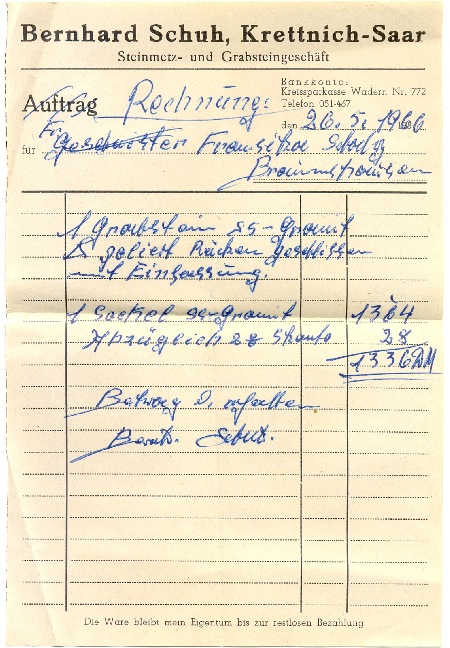 Bernhard Schuh, Krettnich-Saar
Steinmetz- und Grabsteingeschäft
Bankkonto:
Kreissparkasse Wadern Nr. 772
Telefon 051-467
Auftrag Rechnung
den 26.5.1966
für Geschwister Franziska
Braunshausen
1 Grabstein ss-Granit
poliert Rücken geschliffen
mit Einfassung.
1 Sockel ss-Granit 1364
Abzüglich 28 Skonto 28
1336 DM
Betrag d. erhalten
Bernh. Schuh.
Die Ware bleibt mein Eigentum bis zur restlosen Bezahlung